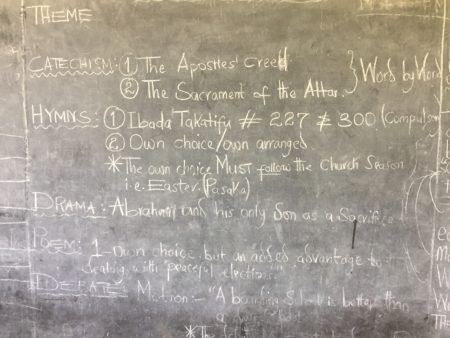 THEME
CATECHISM: ① The Apostles' Creed
② The Sacrament of the Altar. } Word by Word
HYMNS: ① Ibada Takatifu # 227 & 300 (Compulsory
② Own choice/own arranged
* The own choice MUST follow the Church Season
i.e. Easter (Pasaka)
DRAMA: Abraham and his only Son as a Sacrifice
POEM: 1-Own choice but an added advantage to
dealing with peaceful elections
DEBATE Motion:- "A boarding School is better than
a
* The